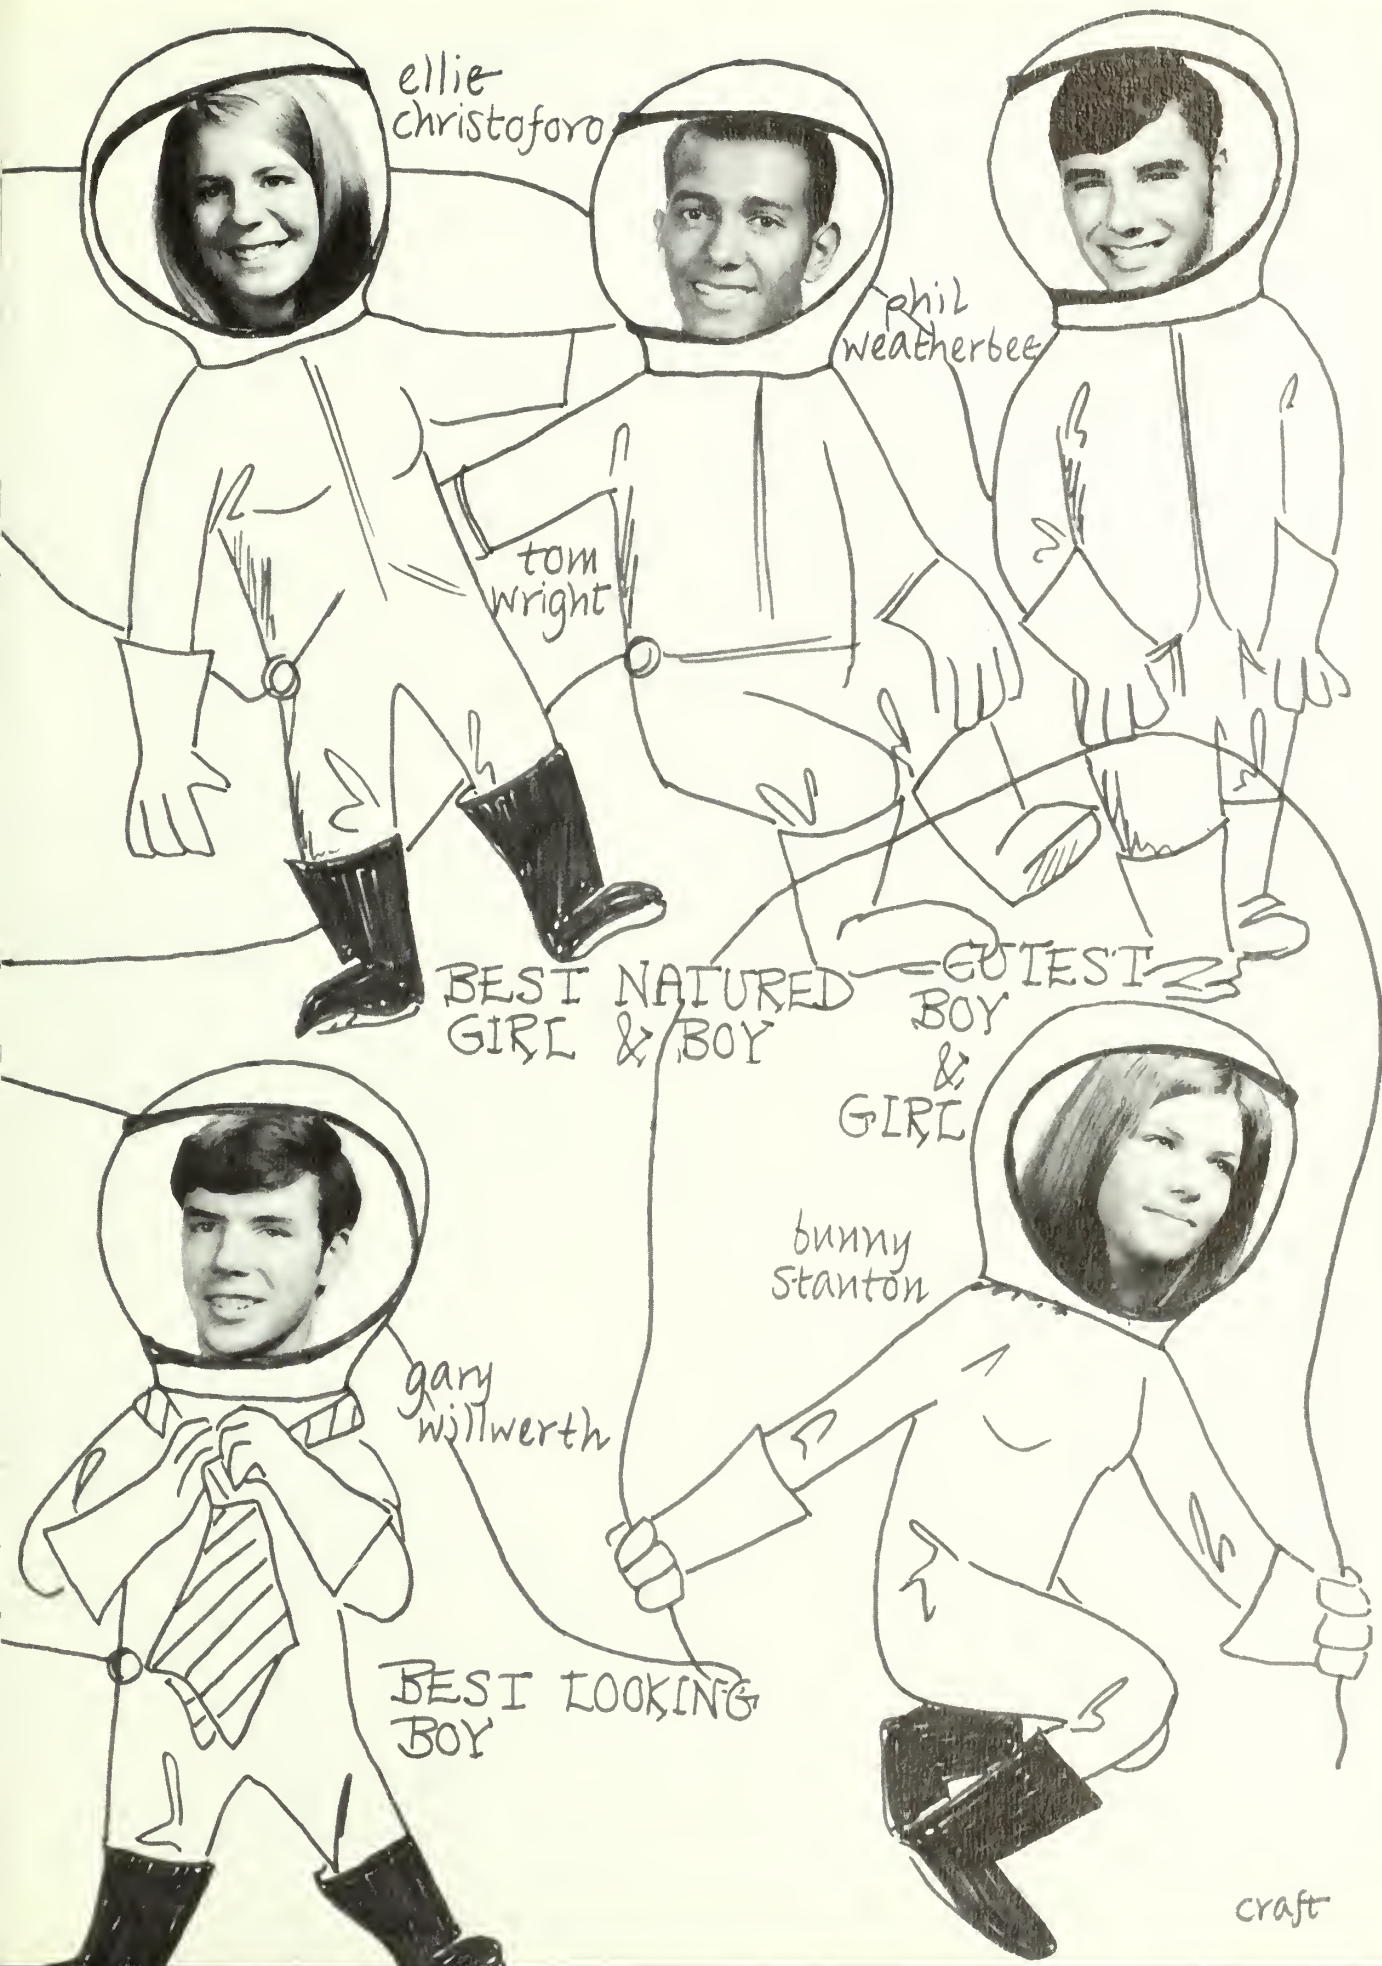 ellie
christoforo
phil
weatherbee
tom
wright
BEST NATURED
GIRL & BOY
CUTEST
BOY
&
GIRL
bunny
stanton
gary
willwerth
BEST LOOKING
BOY
craft